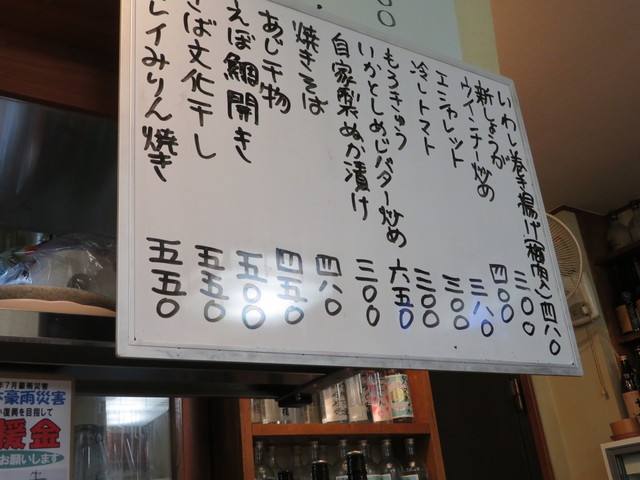 いわし巻き揚げ(梅肉入) 四八〇
新しょうが 三〇〇
ウインナー炒め 四〇〇
エシャレット 三八〇
冷しトマト 三〇〇
もろきゅう 三〇〇
いかとしめじバター炒め 六五〇
自家製ぬか漬け 三〇〇
焼きそば 四八〇
あじ干物 四五〇
えぼ鯛開き 五〇〇
さば文化干し 五五〇
レイみりん焼き 五五〇
年7月豪雨災害
豪雨災害
復興を目指して
援金
お願いします